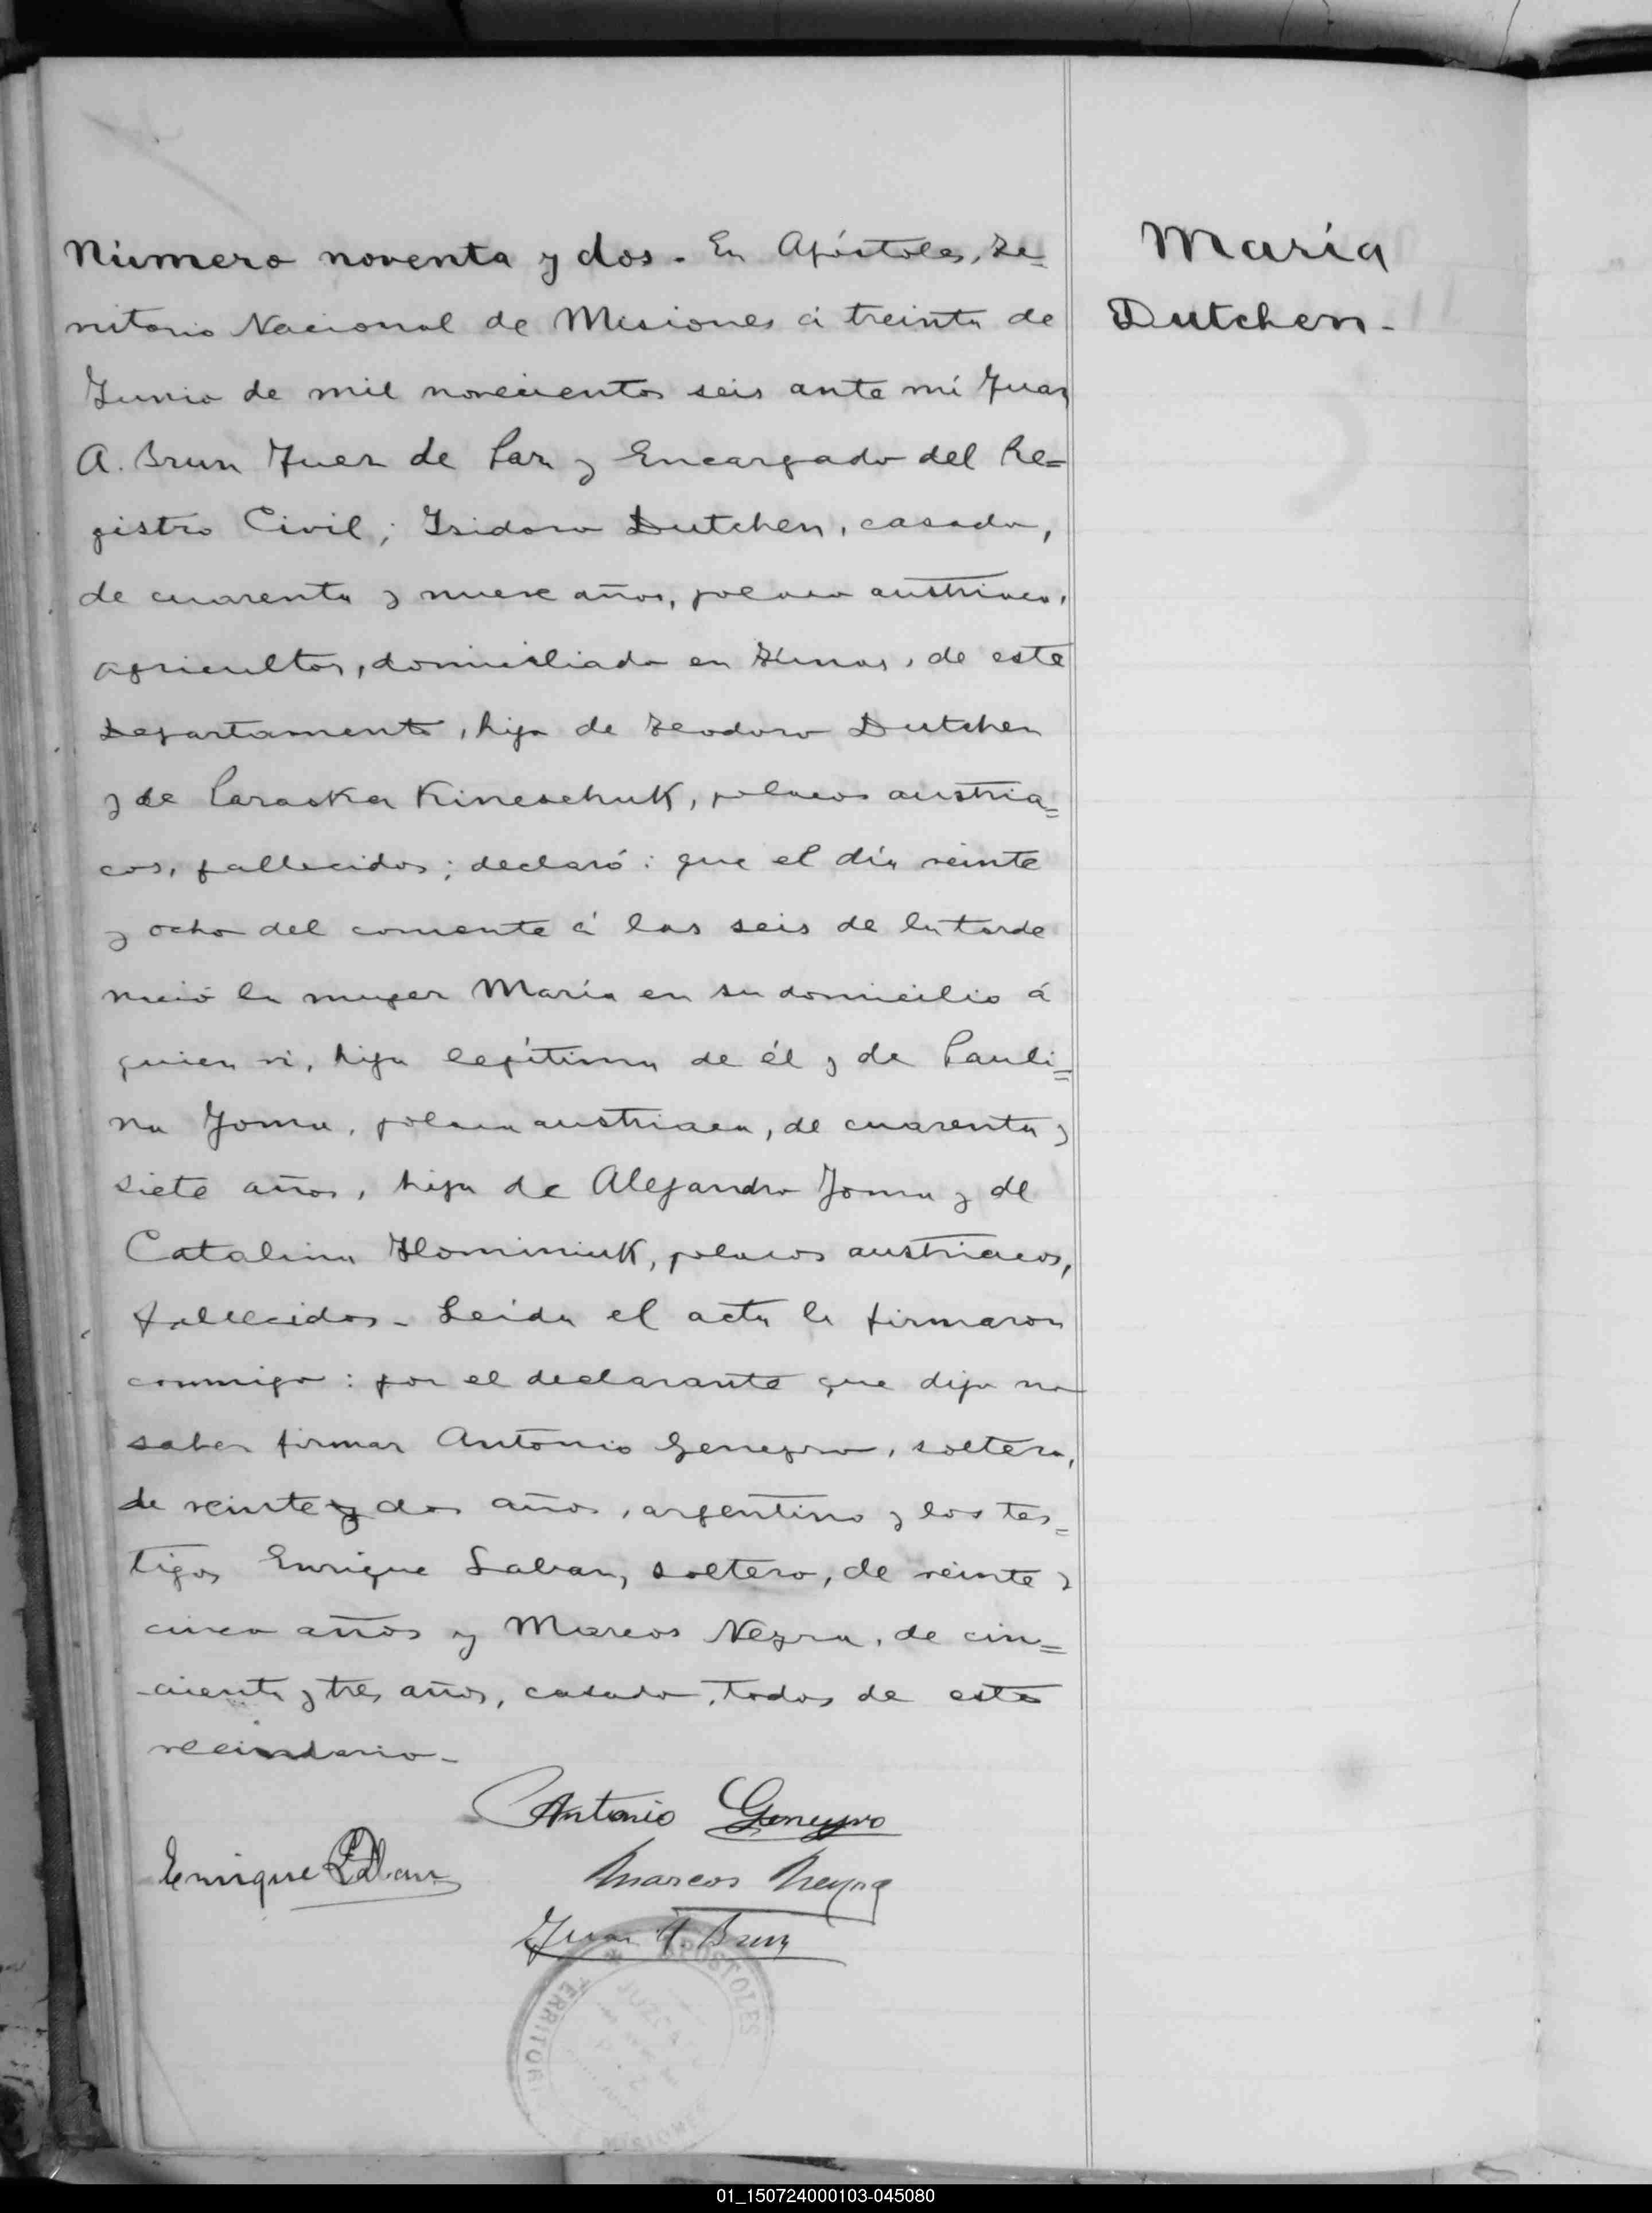 Número noventa y dos. En Apóstoles, Te-
rritorio Nacional de Misiones á treinta de
Junio de mil novecientos seis ante mí Juan
A. Brun Juez de Paz y Encargado del Re=
gistro Civil; Isidoro Dutchen, casado,
de cuarenta y nueve años, polaco austriaco,
agricultor, domiciliado en Tunas, de este
Departamento, hijo de Teodoro Dutchen
y de Paraska Kineschuk, polacos austria=
cos, fallecidos; declaró: que el día veinte
y ocho del corriente á las seis de la tarde
nació la muger María en su domicilio á
quien ví, hija legítima de él y de Pauli=
na Joma, polaca austriaca, de cuarenta y
siete años, hija de Alejandro Joma y de
Catalina Hominiuk, polacos austriacos,
fallecidos. Leida el acta la firmaron
conmigo: por el declarante que dijo no
saber firmar Antonio Geneyro, soltero,
de veinte y dos años, argentino y los tes=
tigos Enrique Laban, soltero, de veinte y
cinco años y Marcos Neyra, de cin=
cuenta y tres años, casado, todos de este
vecindario-
María
Dutchen-
Antonio Geneyro
Enrique Laban
Marcos Neyra
Juan A Brun
APOSTOLES
TERRITORI
MISIONES
01_150724000103-045080